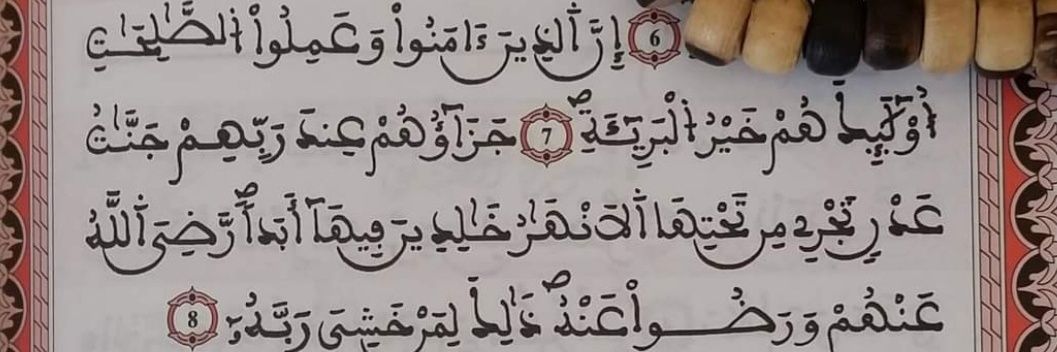 6 إِنَّ ٱلذِينَ ءَامَنُواْ وَعَمِلُواْ ٱلصَّٰلِحَٰتِ
أُوْلَٰٓئِكَ هُمْ خَيْرُ ٱلْبَرِيٓـَٔةِۖ 7 جَزَآؤُهُمْ عِندَ رَبِّهِمْ جَنَّٰتُ
عَدْنٖ تَجْرِے مِن تَحْتِهَا ٱلَانْهَٰرُ خَٰلِدِينَ فِيهَآ أَبَداٗۖ رَّضِيَ ٱللَّهُ
عَنْهُمْ وَرَضُواْ عَنْهُۖ ذَٰلِكَ لِمَنْ خَشِيَ رَبَّهُۥۖ 8